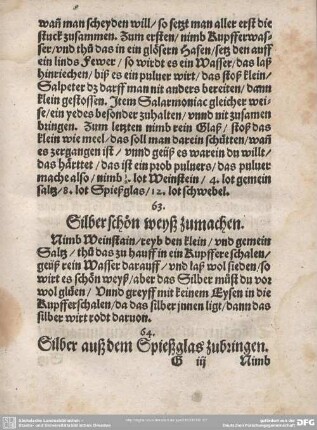 wañ man scheyden will / so setzt man aller erst die
stuck zusammen. Zum ersten / nimb Kupfferwas=
ser / vnd thů das in ein glösern Hafen / setz den auff
ein linds Fewer / so wirdt es ein Wasser / das laß
hinriechen / biß es ein puluer wirt / das stoß klein /
Salpeter dz darff man nit anders bereiten / dann
klein gestossen. Item Salarmoniac gleicher wei=
se / ein yedes besonder zuhalten / vnnd nit zusamen
bringen. Zum letzten nimb rein Glaß / stoß das
klein wie meel / das soll man darein schütten / wañ
es zergangen ist / vnnd geüß es warein du wilt /
das härttet / das ist ein prob pulvers / das puluer
mache also / nimb lot Weinstein / 4. lot gemein
saltz / 8. lot Spießglas / 12. lot schwebel.
63.
Silber schön weyß zumachen.
Nimb Weinstain / reyb den klein / vnd gemein
Saltz / thů das zu hauff in ein Kupffere schalen /
geüß rein Wasser darauff / vnd laß wol sieden / so
wirt es schön weyß / aber das Silber můst du vor
wol glüen / Vnnd greyff mit keinem Eysen in die
Kupfferschalen / da das silber jnnen ligt / dann das
silber wirt rodt daruon.
64.
Silber auß dem Spießglas zubringen.
G iij Nimb